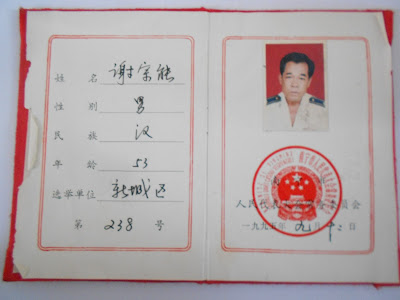 姓 名 谢宗能
性 别 男
民 族 汉
年 龄 53
选学单位 新城区
第 238 号
人民代表大会常务委员会
一九九五年 九月 十二日